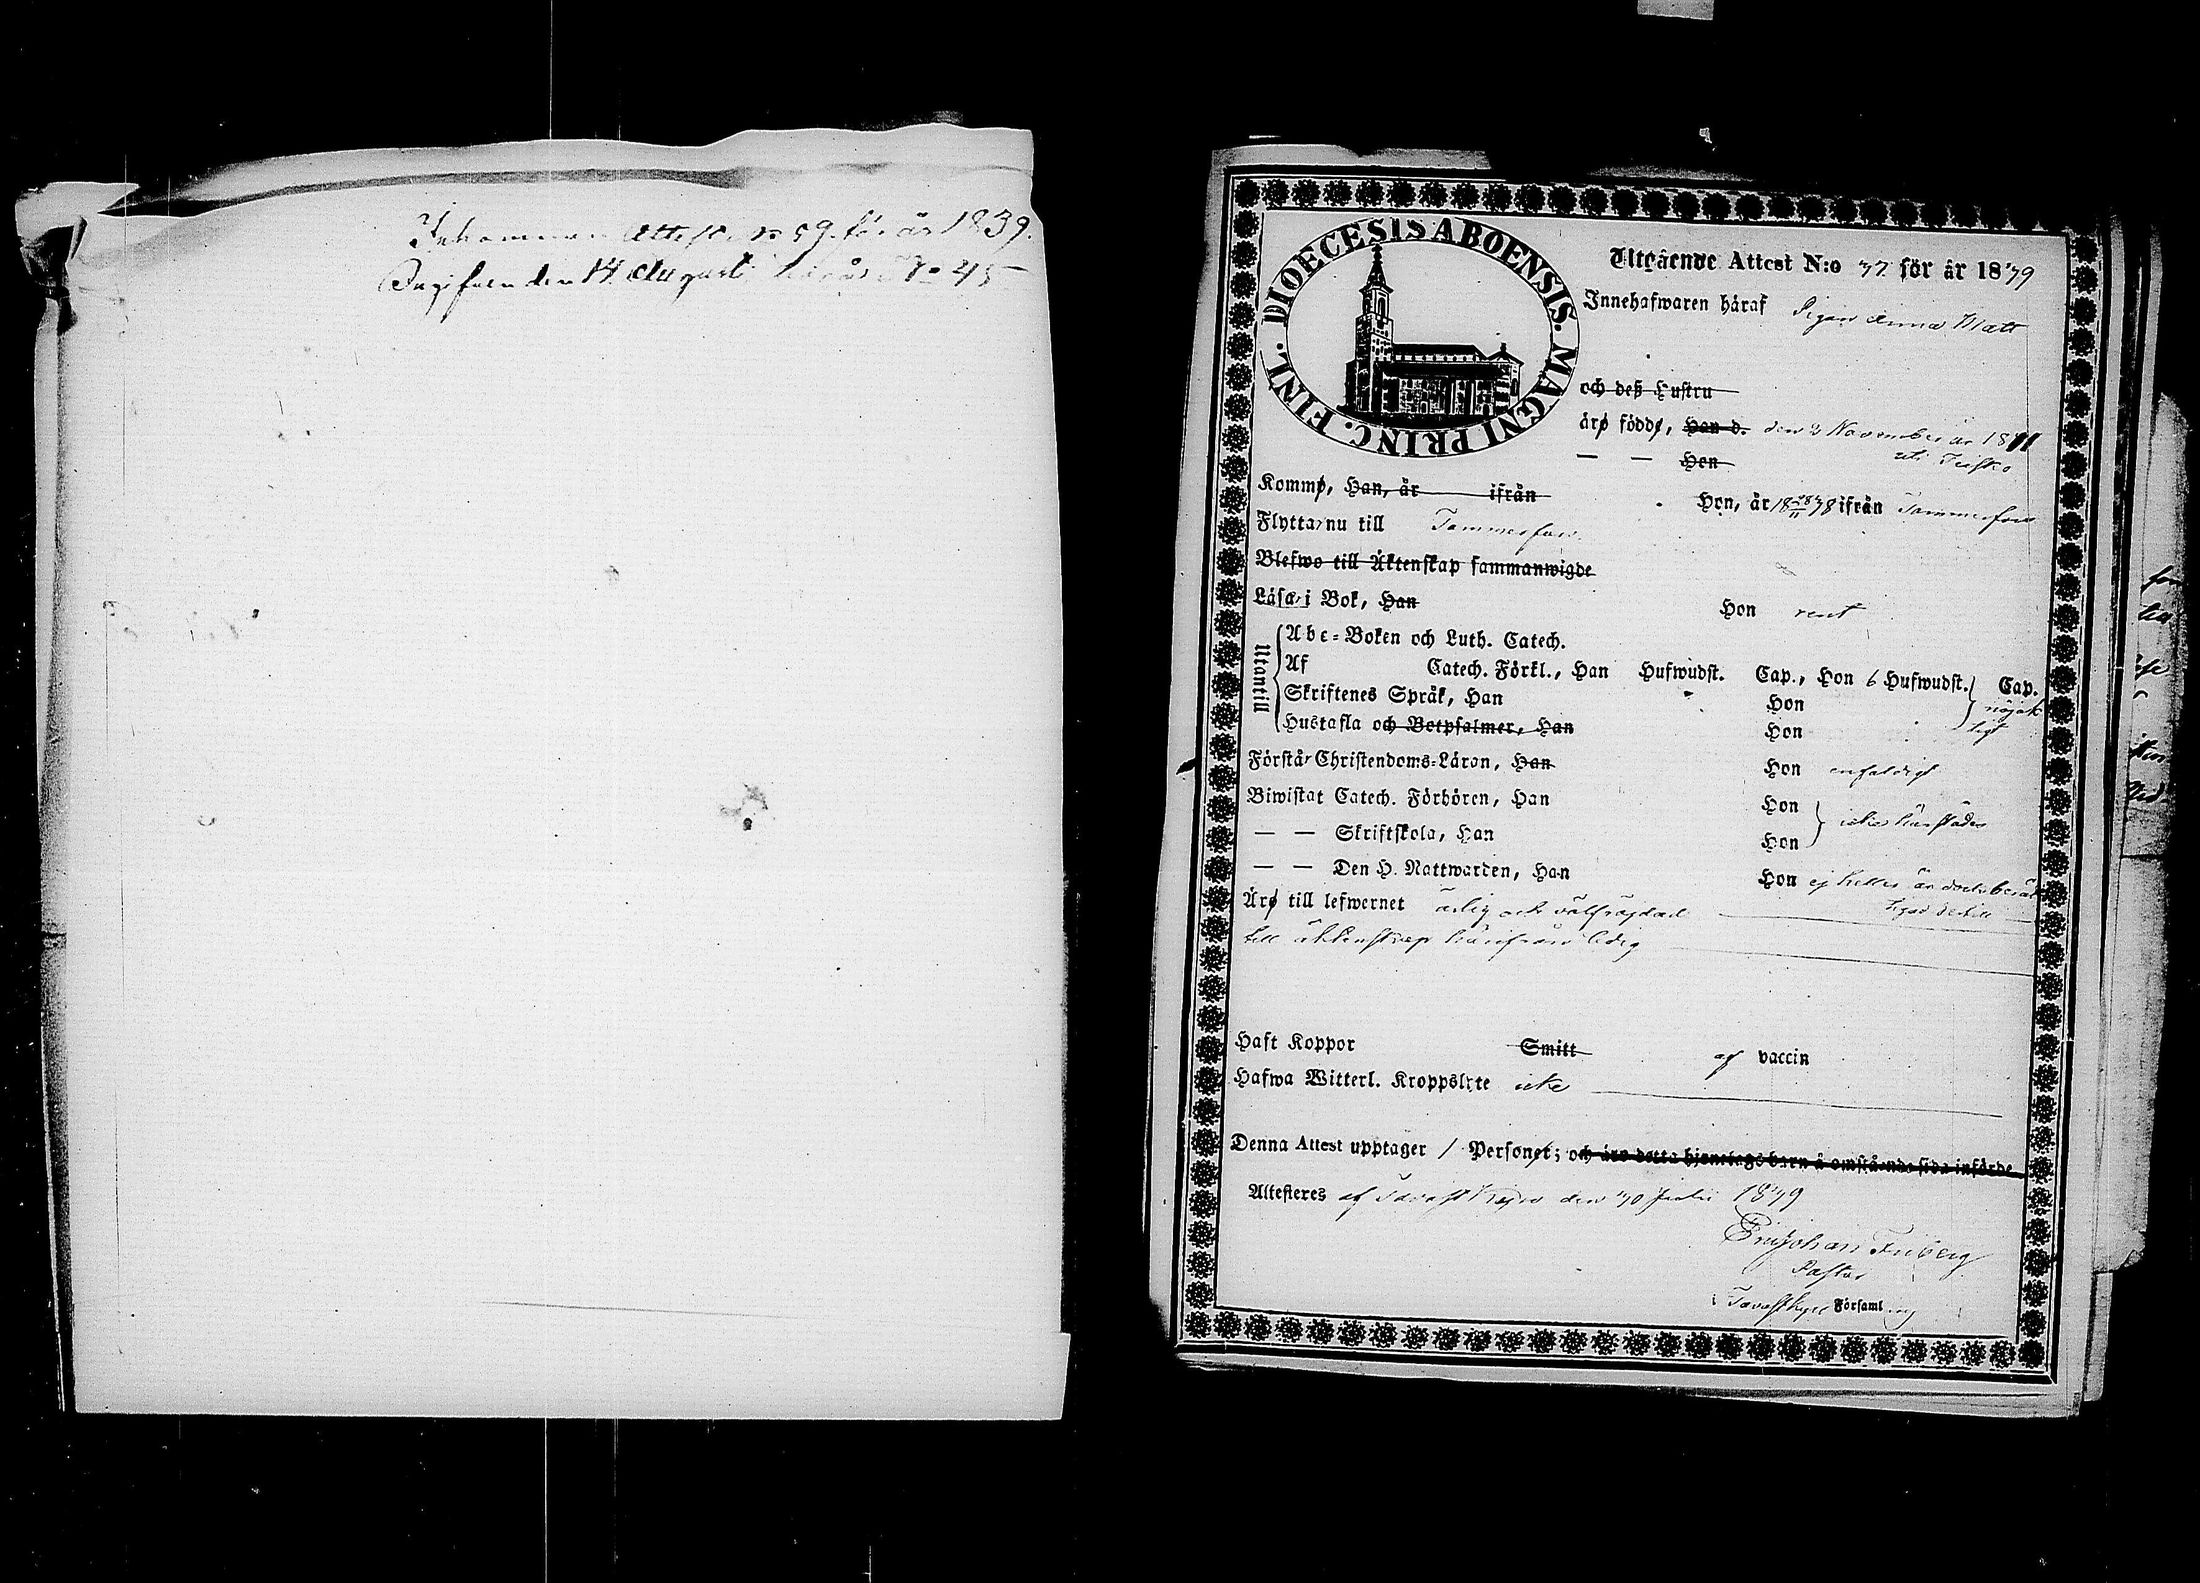 Inkommen Attest No 59 för år 1839.
Ingifven den 14 Augusti No 45
DIOECESIS ABOENSIS. MAGNI PRINC. FINL.
Utgående Attest N:o 37 för år 1839
Innehafwaren häraf Pigan Anna Matt
och deß Hustru
äro födde, Han d. den 2 November år 1811
— — Hon uti Teisko
Kommo, Han, år ifrån Hon, år 1838 ifrån Tammerfors
Flytta nu till Tammerfors.
Blefwo till Äktenskap sammanwigde
Läsa i Bok, Han Hon rent
Utantill
Abc-Boken och Luth. Catech.
Af Catech. Förkl., Han Hufwudst. Cap., Hon 6 Hufwudst. Cap.
Skriftenes Språk, Han Hon nöjak
Hustafla och Botpsalmer, Han Hon ligt
Förstå Christendoms-Läran, Han Hon enfaldigt
Biwistat Catech. Förhören, Han Hon
— — Skriftskola, Han Hon icke härstädes
— — Den H. Nattwarden, Han Hon ej heller är
Äro till lefwernet ärlig och välfräjdad
till äktenskap härifrån ledig
Haft Koppor Smitt af vaccin
Hafwa Witterl. Kroppslyte icke
Denna Attest upptager 1 Personer; och äro detta hjonelags barn å omstående sida införde.
Attesteres af Tavastkyro den 30 Julii 1839
Johan Friberg
Pastor
Tavastkyro Församling